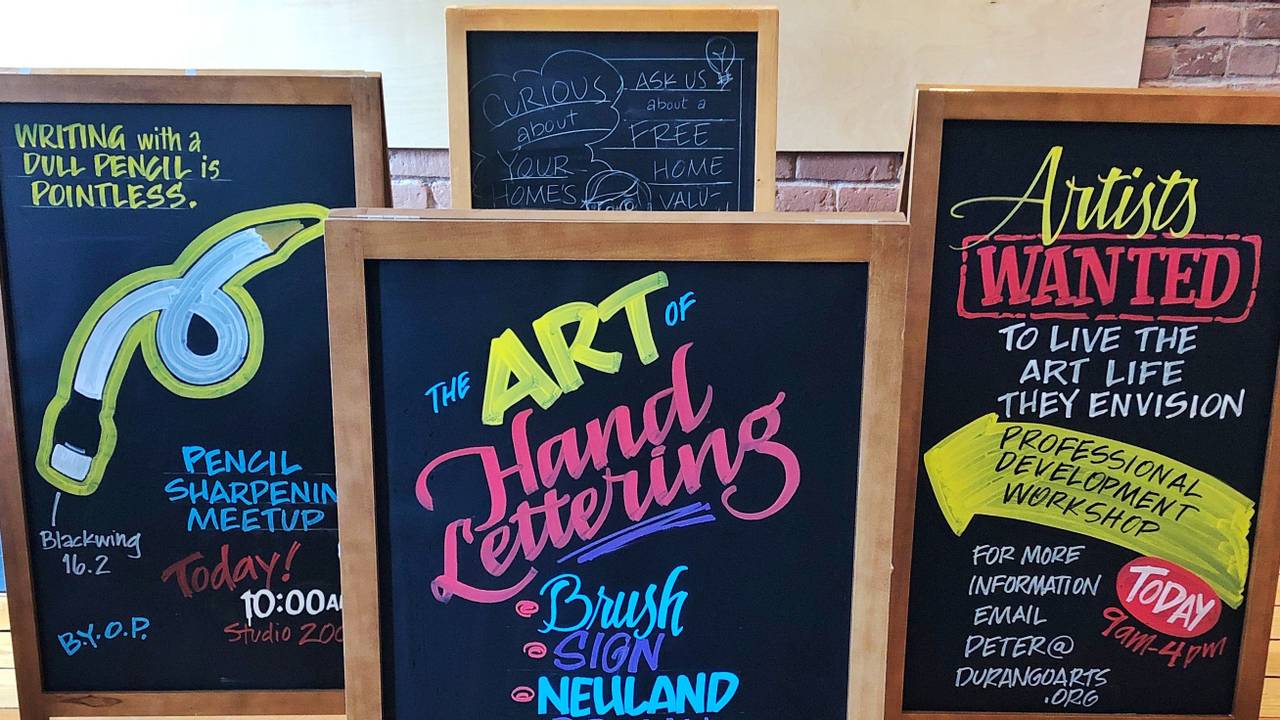 WRITING with a
DULL PENCIL is
POINTLESS.
Blackwing
16.2
PENCIL
SHARPENIN
MEETUP
Today!
10:00A
Studio 200
B.Y.O.P.
CURIOUS
about
YOUR
HOME'S
ASK US
about a
FREE
HOME
VALU-
THE ART OF
Hand
Lettering
Brush
SIGN
NEULAND
Artists
WANTED
TO LIVE THE
ART LIFE
THEY ENVISION
PROFESSIONAL
DEVELOPMENT
WORKSHOP
FOR MORE
INFORMATION
EMAIL
PETER@
DURANGOARTS
.ORG
TODAY
9am-4pm